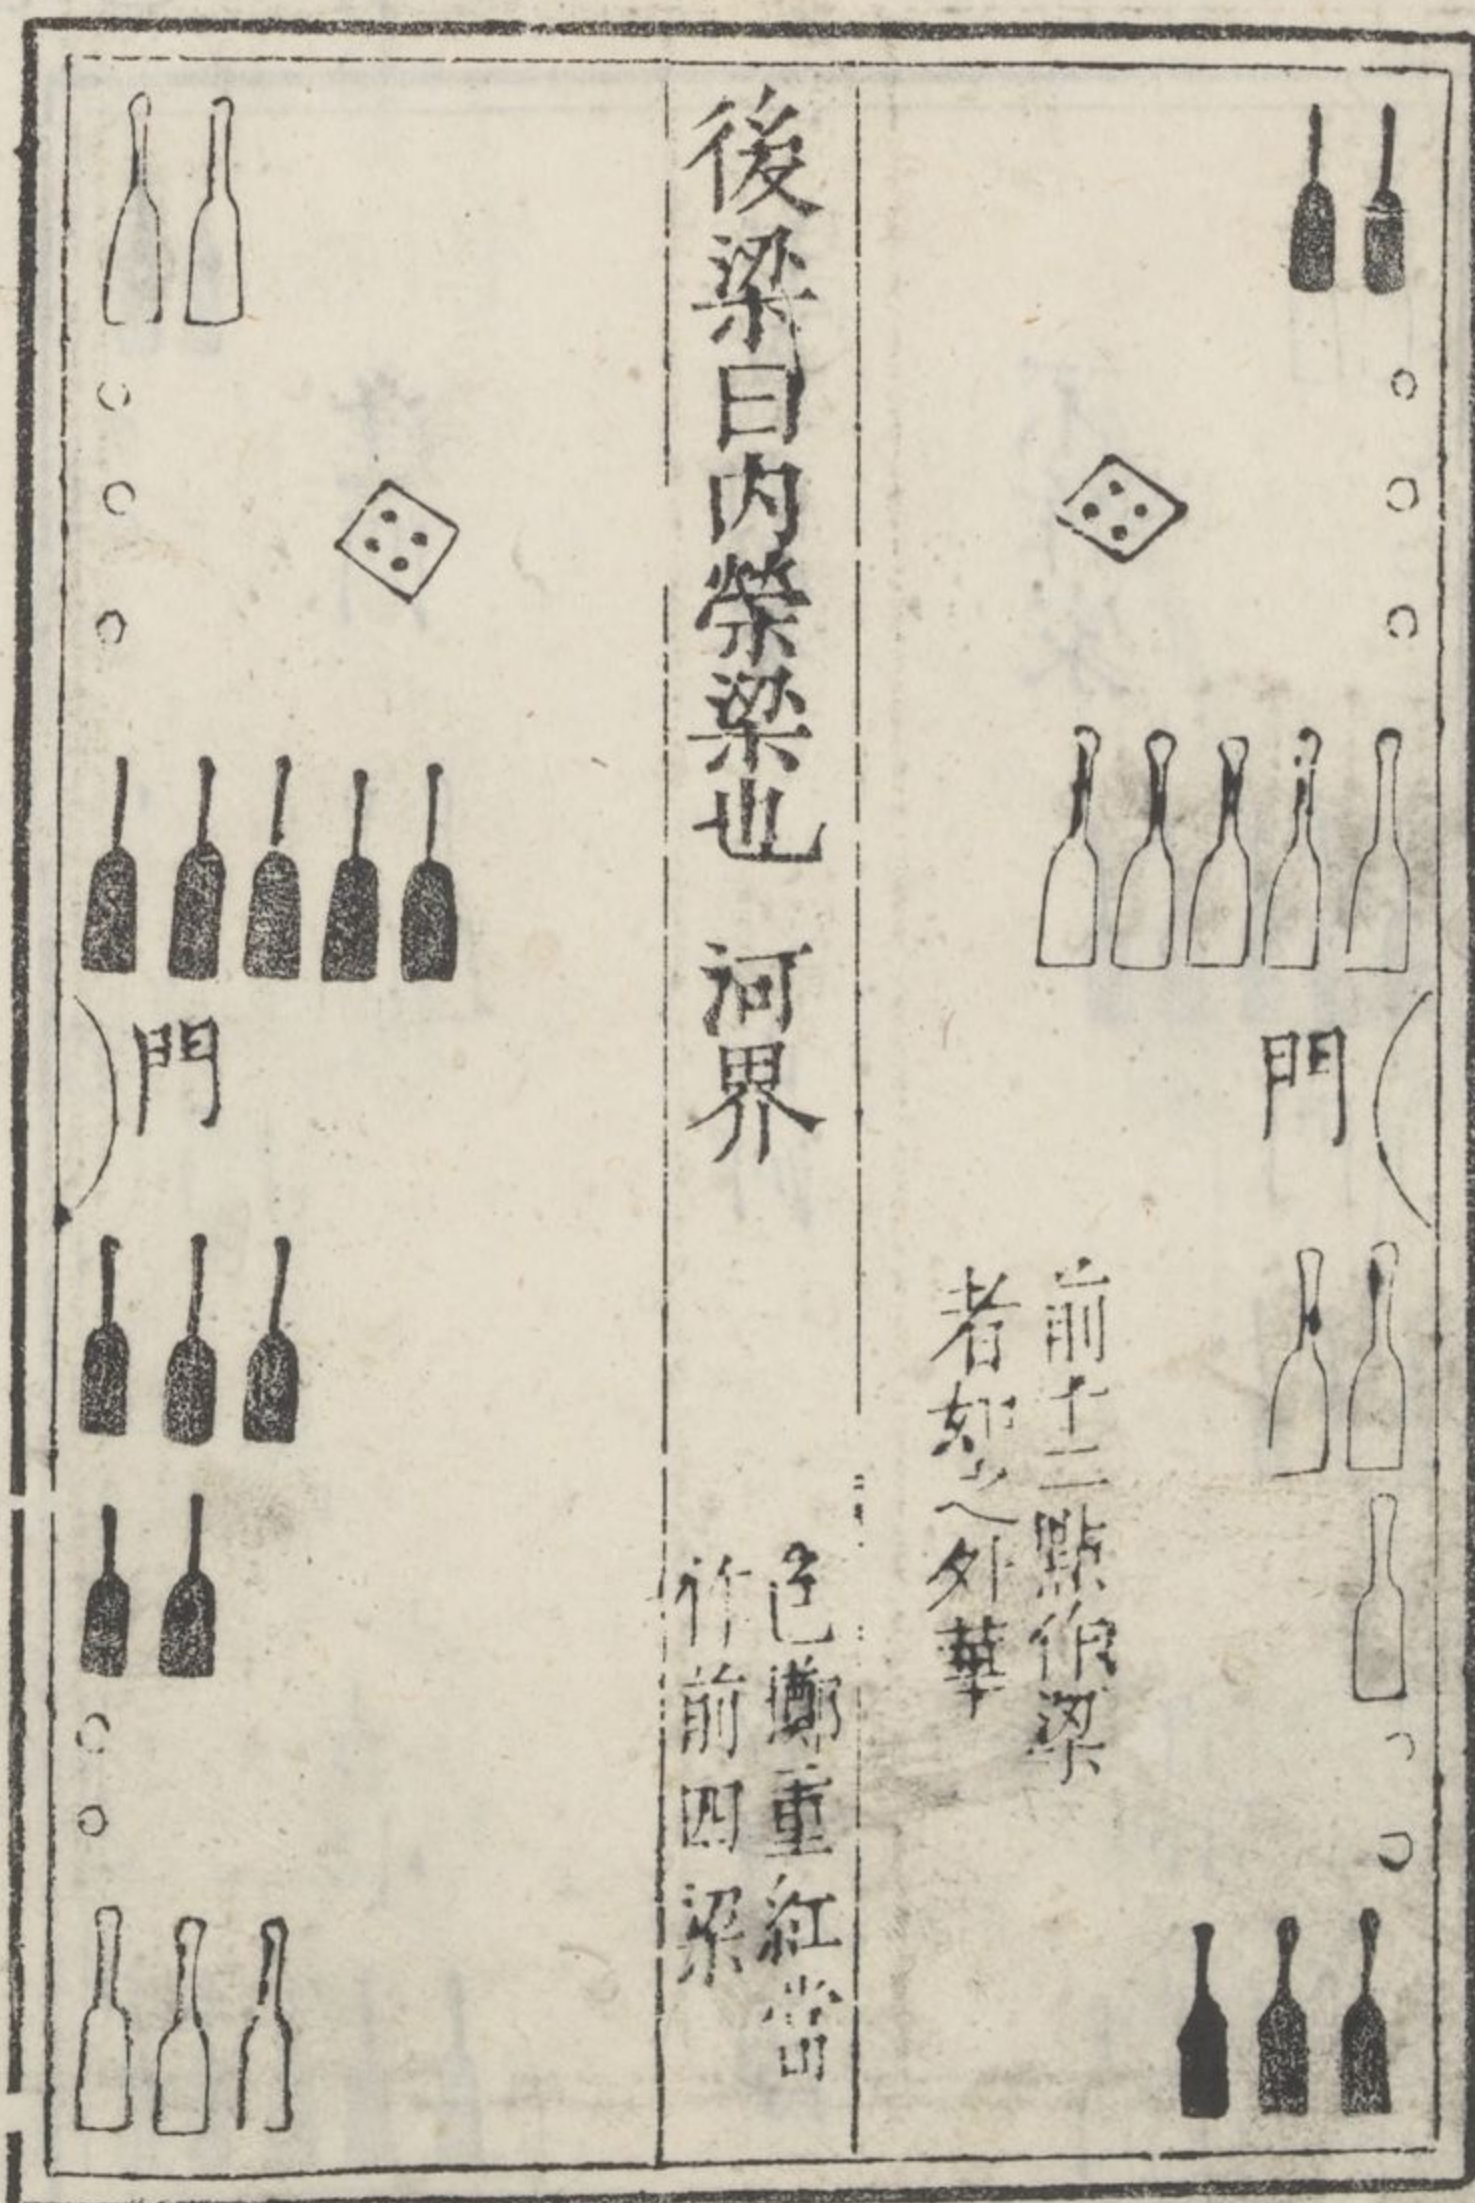 門
前十二點作梁
者如之外華
後梁曰内榮梁也 河界
色鄭重紅當
作前四梁
門